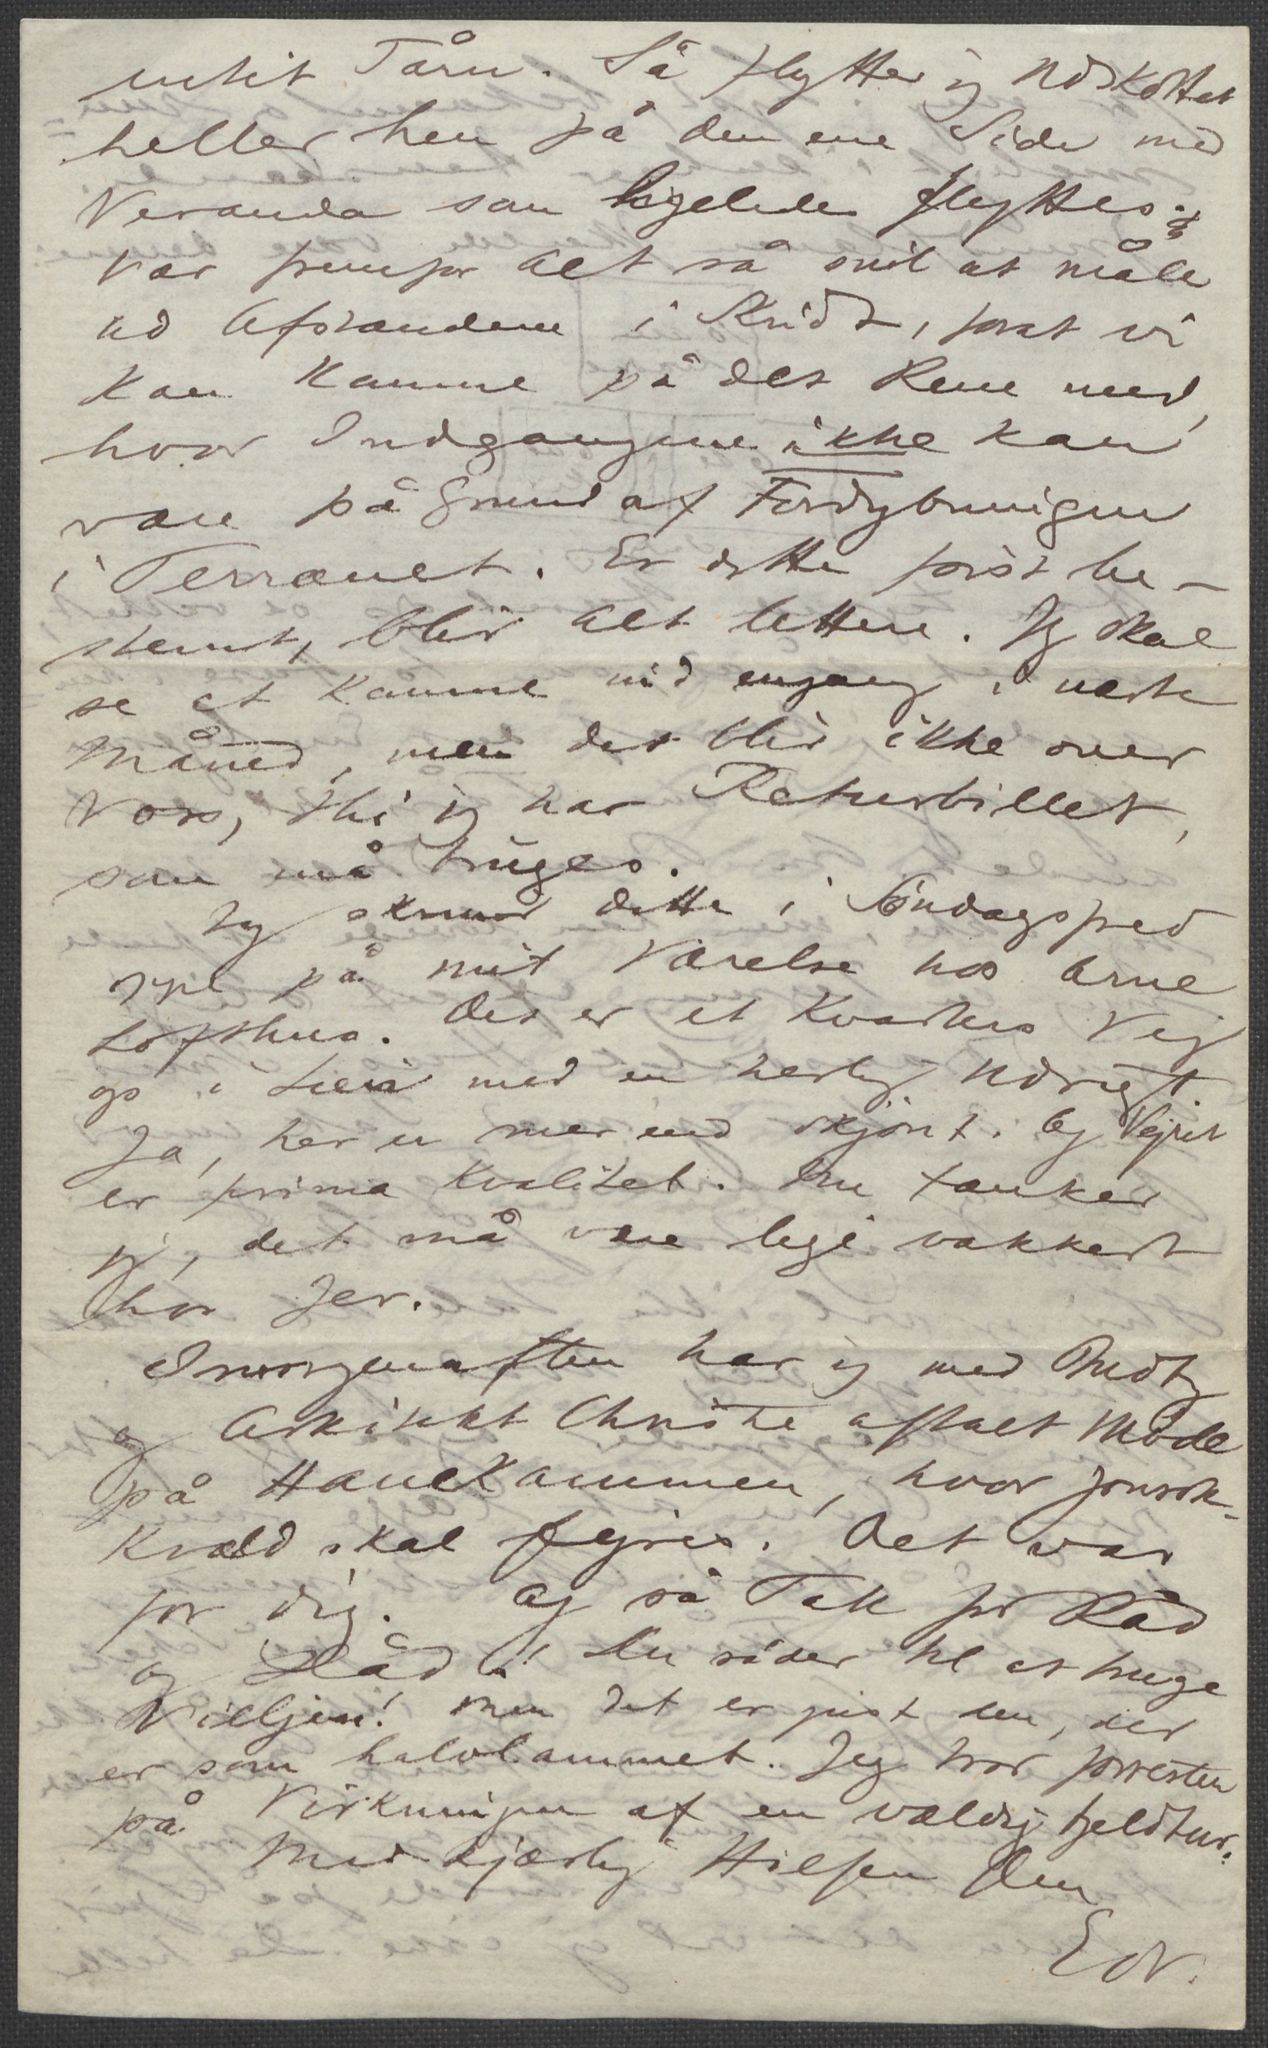 entet Tårn. Så flytter jeg Udskottet
heller hen på den ene Side med
Veranda som ligeledes flyttes. &
Vær fremfor Alt så snil at måle
ud Afstandene i Skridt, forat vi
kan komme på det Rene med,
hvor Indgangene ikke kan
være på Grund af Fordybningen
i Terrænet. Er dette først be-
stemt, blir Alt lettere. Jeg skal
se at komme ind engang i næste
Måned, men det blir ikke over
Voss, thi jeg har Returbillet,
som må bruges.
Jeg skriver dette i Søndagsfred
oppe på mit Værelse hos Arne
Lofthus. Det er et Kvarters Vej
op i Lien med en herlig Udsigt.
Ja, her er mer end skjönt. Og Vejret
er prima Kvalitet. Nu tænker
jeg, det må være lige vakkert
hos Jer.
Imorgenaften har jeg med
og Arkitekt Christie aftalt Møde
på Hanekammen, hvor Jonsok-
kvæld skal fejres. Det var
for dig. Og så Tak for Råd
og Dåd! Du råder til at bruge
Viljen! Men det er just den, der
er som halvlammet. Jeg tror forresten
på Virkningen af en vældig Fjeldtur.
Med kjærlig Hilsen Din
Edv.